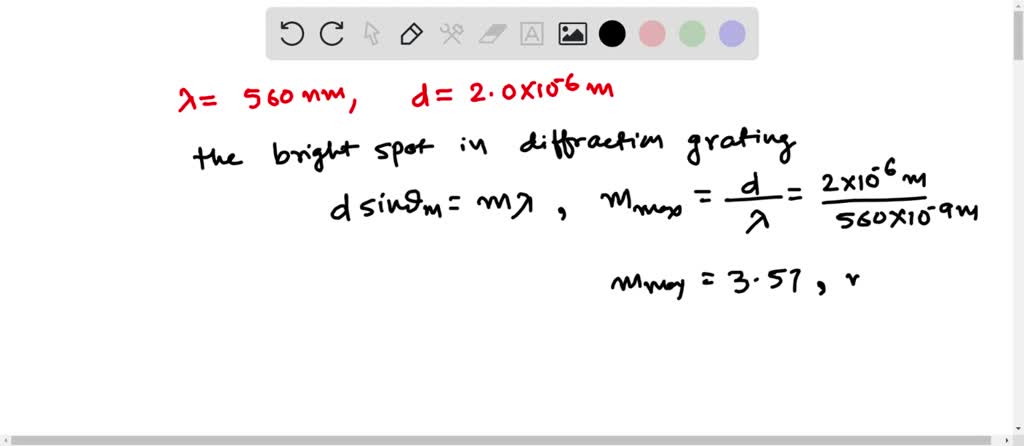 λ= 560 nm, d= 2.0X10⁻⁶ m
the bright spot in diffraction grating
d sinθm = mλ , Mmax = d/λ = 2X10⁻⁶ m/560X10⁻⁹ m
Mmax = 3.57 , r